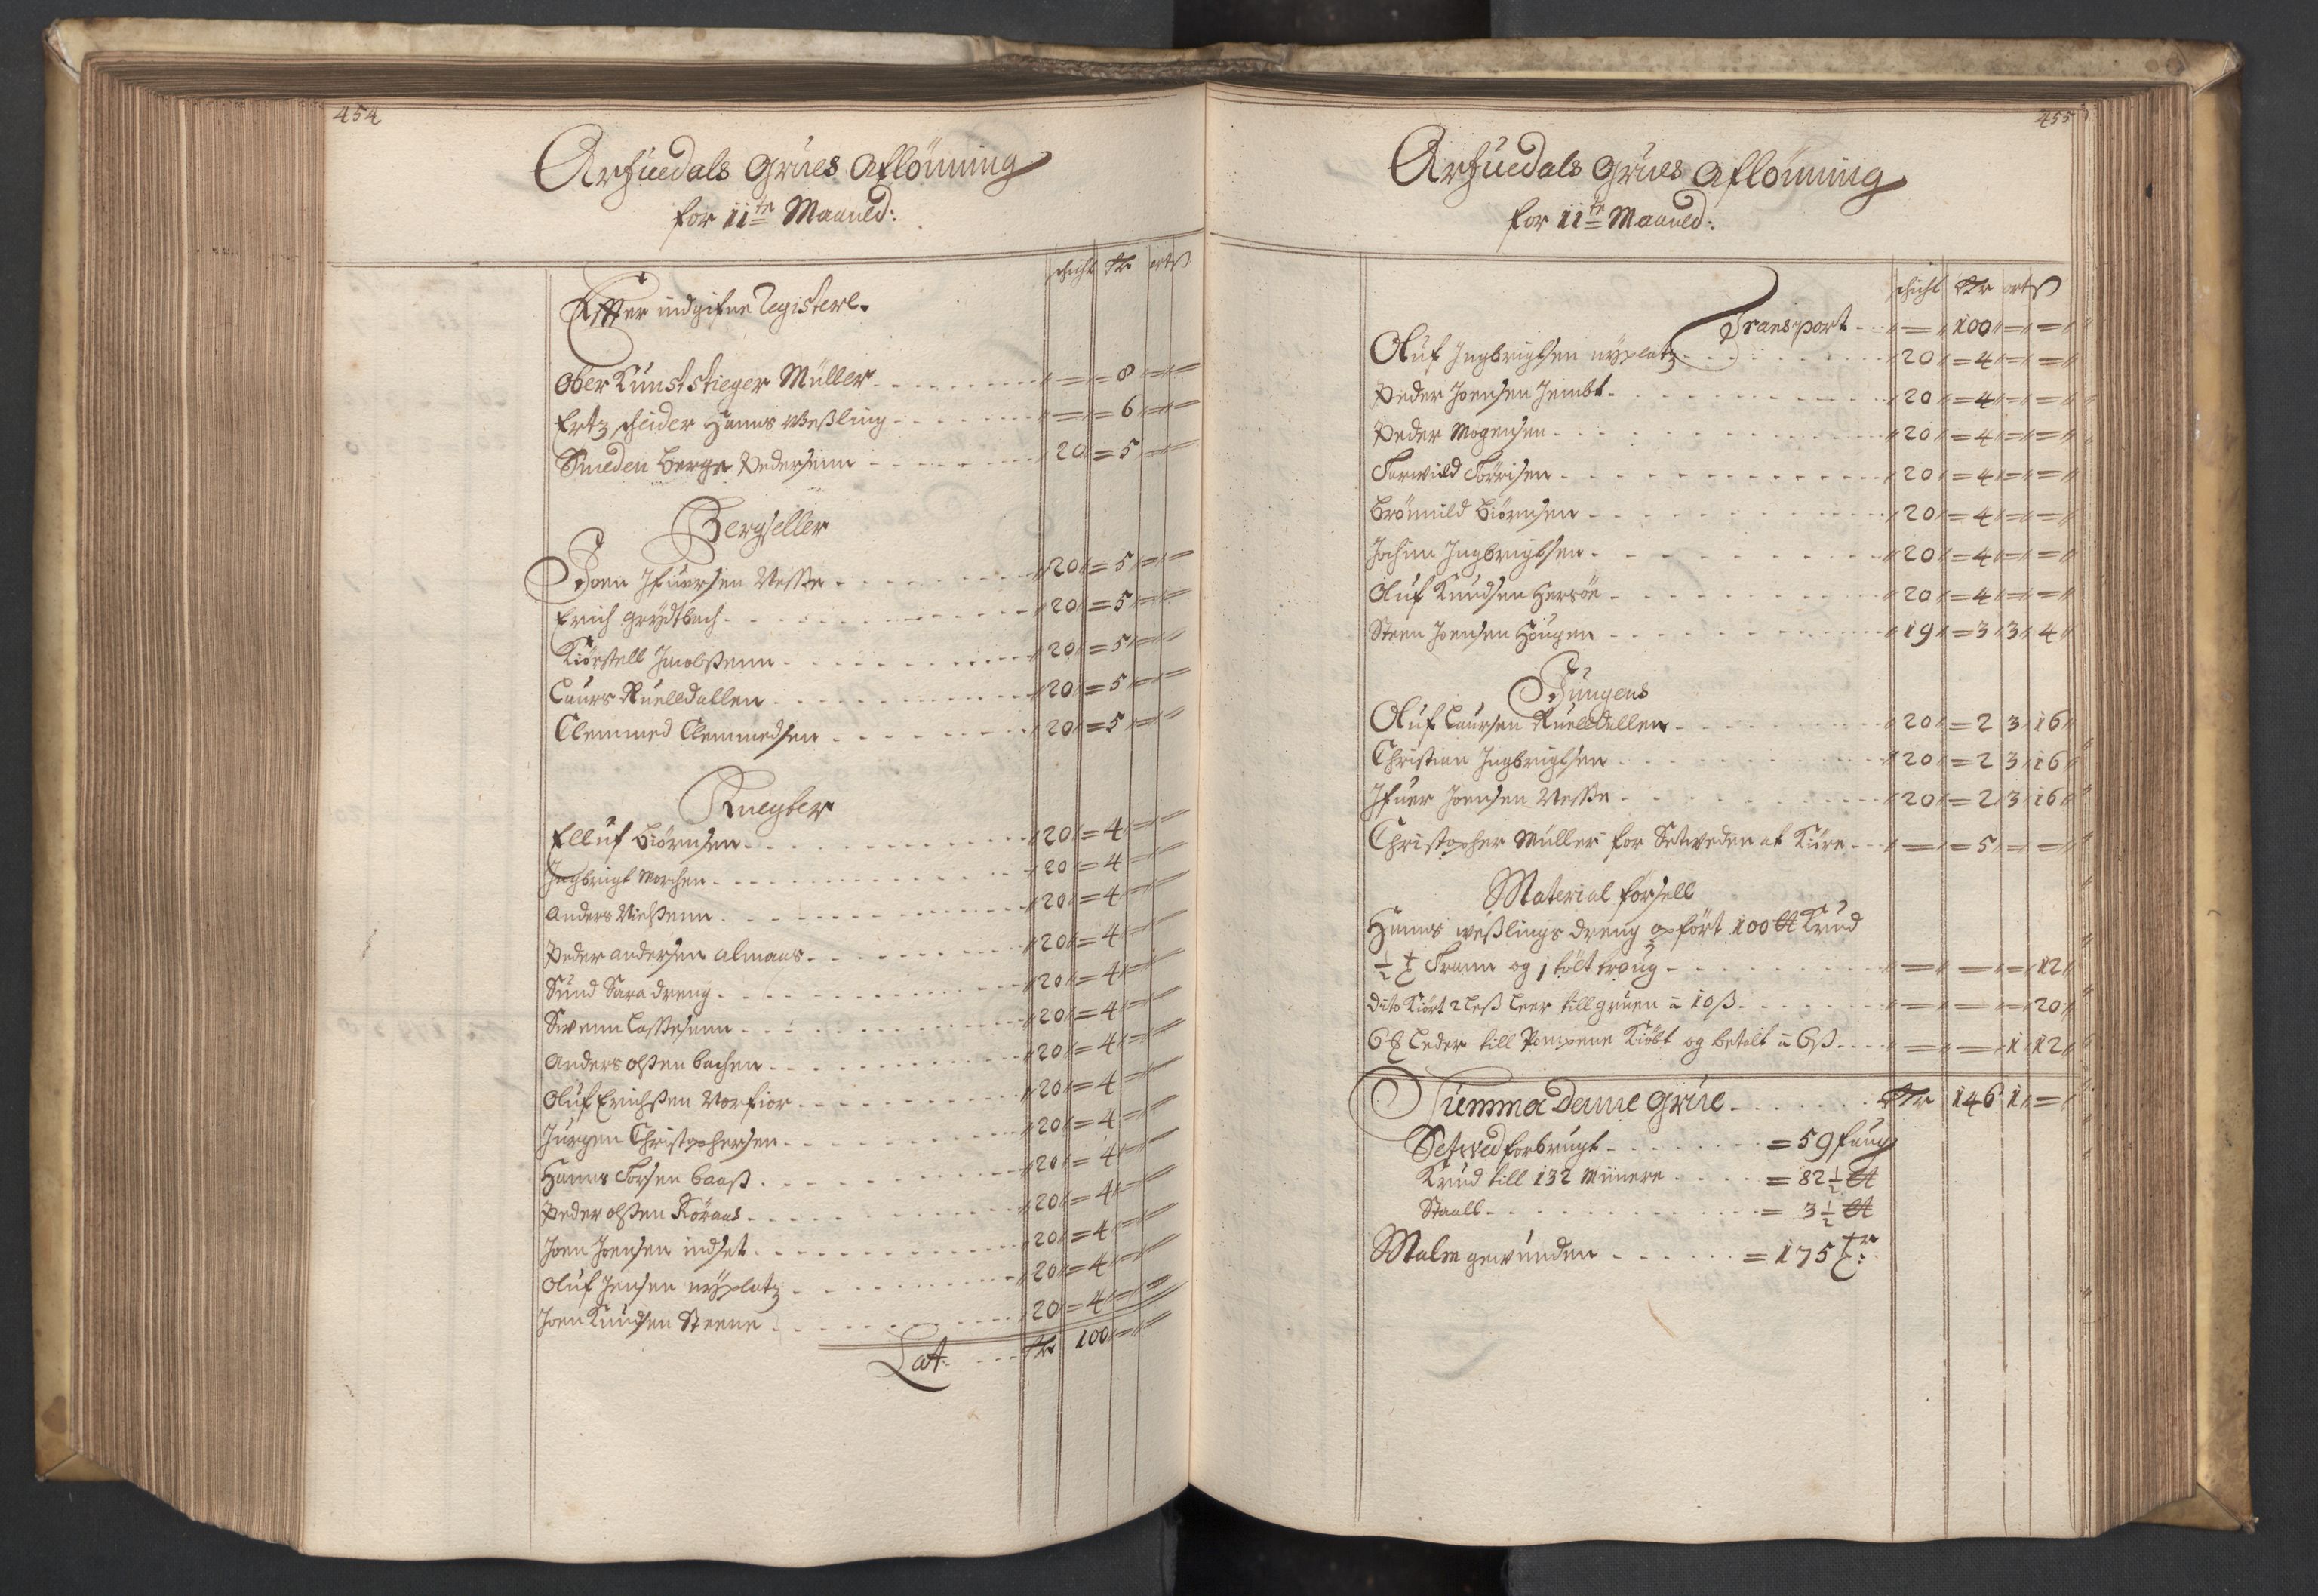 454
Arfuedals Grues Aflönning
for 11te Maaned:
schicht Rr ort ß
Effter indgifne Registere.
Ober Kunststieger Müller - - - " = " = 8 " = " =
Ertz scheider Hanns Weßling - - - " = " = 6 " = " =
Smeden Berge Pedersenn - - - 20 = 5 = =
Bergseller
Joen Ifuersen Nesse - - - " 20 " = 5 " = " =
Erich Grydtbach - - - " 20 " = 5 " = " =
Kiörstell Jacobßenn - - - " 20 " = 5 " = " =
Laurs Ruelldallen - - - " 20 " = 5 " = " =
Clemmed Clemmedsen - - - " 20 " = 5 " = " =
Knegter
Elluf Biörnsen - - - " 20 " = 4 " = " =
Ingbrigt Morchen - - - " 20 " = 4 " = " =
Anders Nielßenn - - - " 20 " = 4 " = " =
Peder Andersen Almaas - - - " 20 " = 4 " = " =
Sund Sara dreng - - - " 20 " = 4 " = " =
Swenn Lassesenn - - - " 20 " = 4 " = " =
Anders olßen bachen - - - " 20 " = 4 " = " =
Oluf Erichßen Vorfior - - - " 20 " = 4 " = " =
Jürgen Christophersen - - - " 20 " = 4 " = " =
Hanns Torsen baaß - - - " 20 " = 4 " = " =
Peder olßen Röraas - - - " 20 " = 4 " = " =
Joen Joensen indset - - - " 20 " = 4 " = " =
Oluf Jensen nyplatz - - - " 20 " = 4 " = " =
Joen Knudsen Steene - - - " 20 " = 4 " = " =
Lat - - - Rr 100 " = " =
455
Arfuedals Grues Aflönning
for 11te Maaned:
schicht Rr ort ß
Transport - - - " = " 100 " = " = "
Oluf Ingbrigtsen nyplatz - - - " 20 " = 4 " = " = "
Peder Joensen Jembt - - - " 20 " = 4 " = " = "
Peder Mogensen - - - " 20 " = 4 " = " = "
Torwild Törrisen - - - " 20 " = 4 " = " = "
Brönnild Biörnsen - - - " 20 " = 4 " = " = "
Jochim Ingbrigtsen - - - " 20 " = 4 " = " = "
Oluf Knudsen Hersöe - - - " 20 " = 4 " = " = "
Steen Joensen Hougen - - - " 19 " = 3 " 3 " 4 "
Jungens
Oluf Laursen Ruelldallen - - - " 20 " = 2 3 " 16 "
Christian Ingbrigtsen - - - " 20 " = 2 3 " 16 "
Ifuer Joensen Nesse - - - " 20 " = 2 " 3 " 16 "
Christopher Müller for Setweden at Kiöre - - - " = " = 5 " = " = "
Material forsell
Hanns weßlings dreng opfört 100 ℔ Krud
½ t Trann og 1 tölt troug - - - " = " = " = " 12 "
dito Kiört 2 leß leer till gruen â 10 ß - - - " = " = " = " 20 "
6 ℔ Leder till Pompene Kiöbt og betalt â 6 ß - - - " = " = " 1 " 12 "
Summa denne Grue - - - Rr 146 1 " = "
Setwed forbrugt - - - = 59 faug
Krud till 132 Minere - - - = 82½ ℔
Staall - - - = 3½ ℔
Malm gewunden - - - = 175 tr: